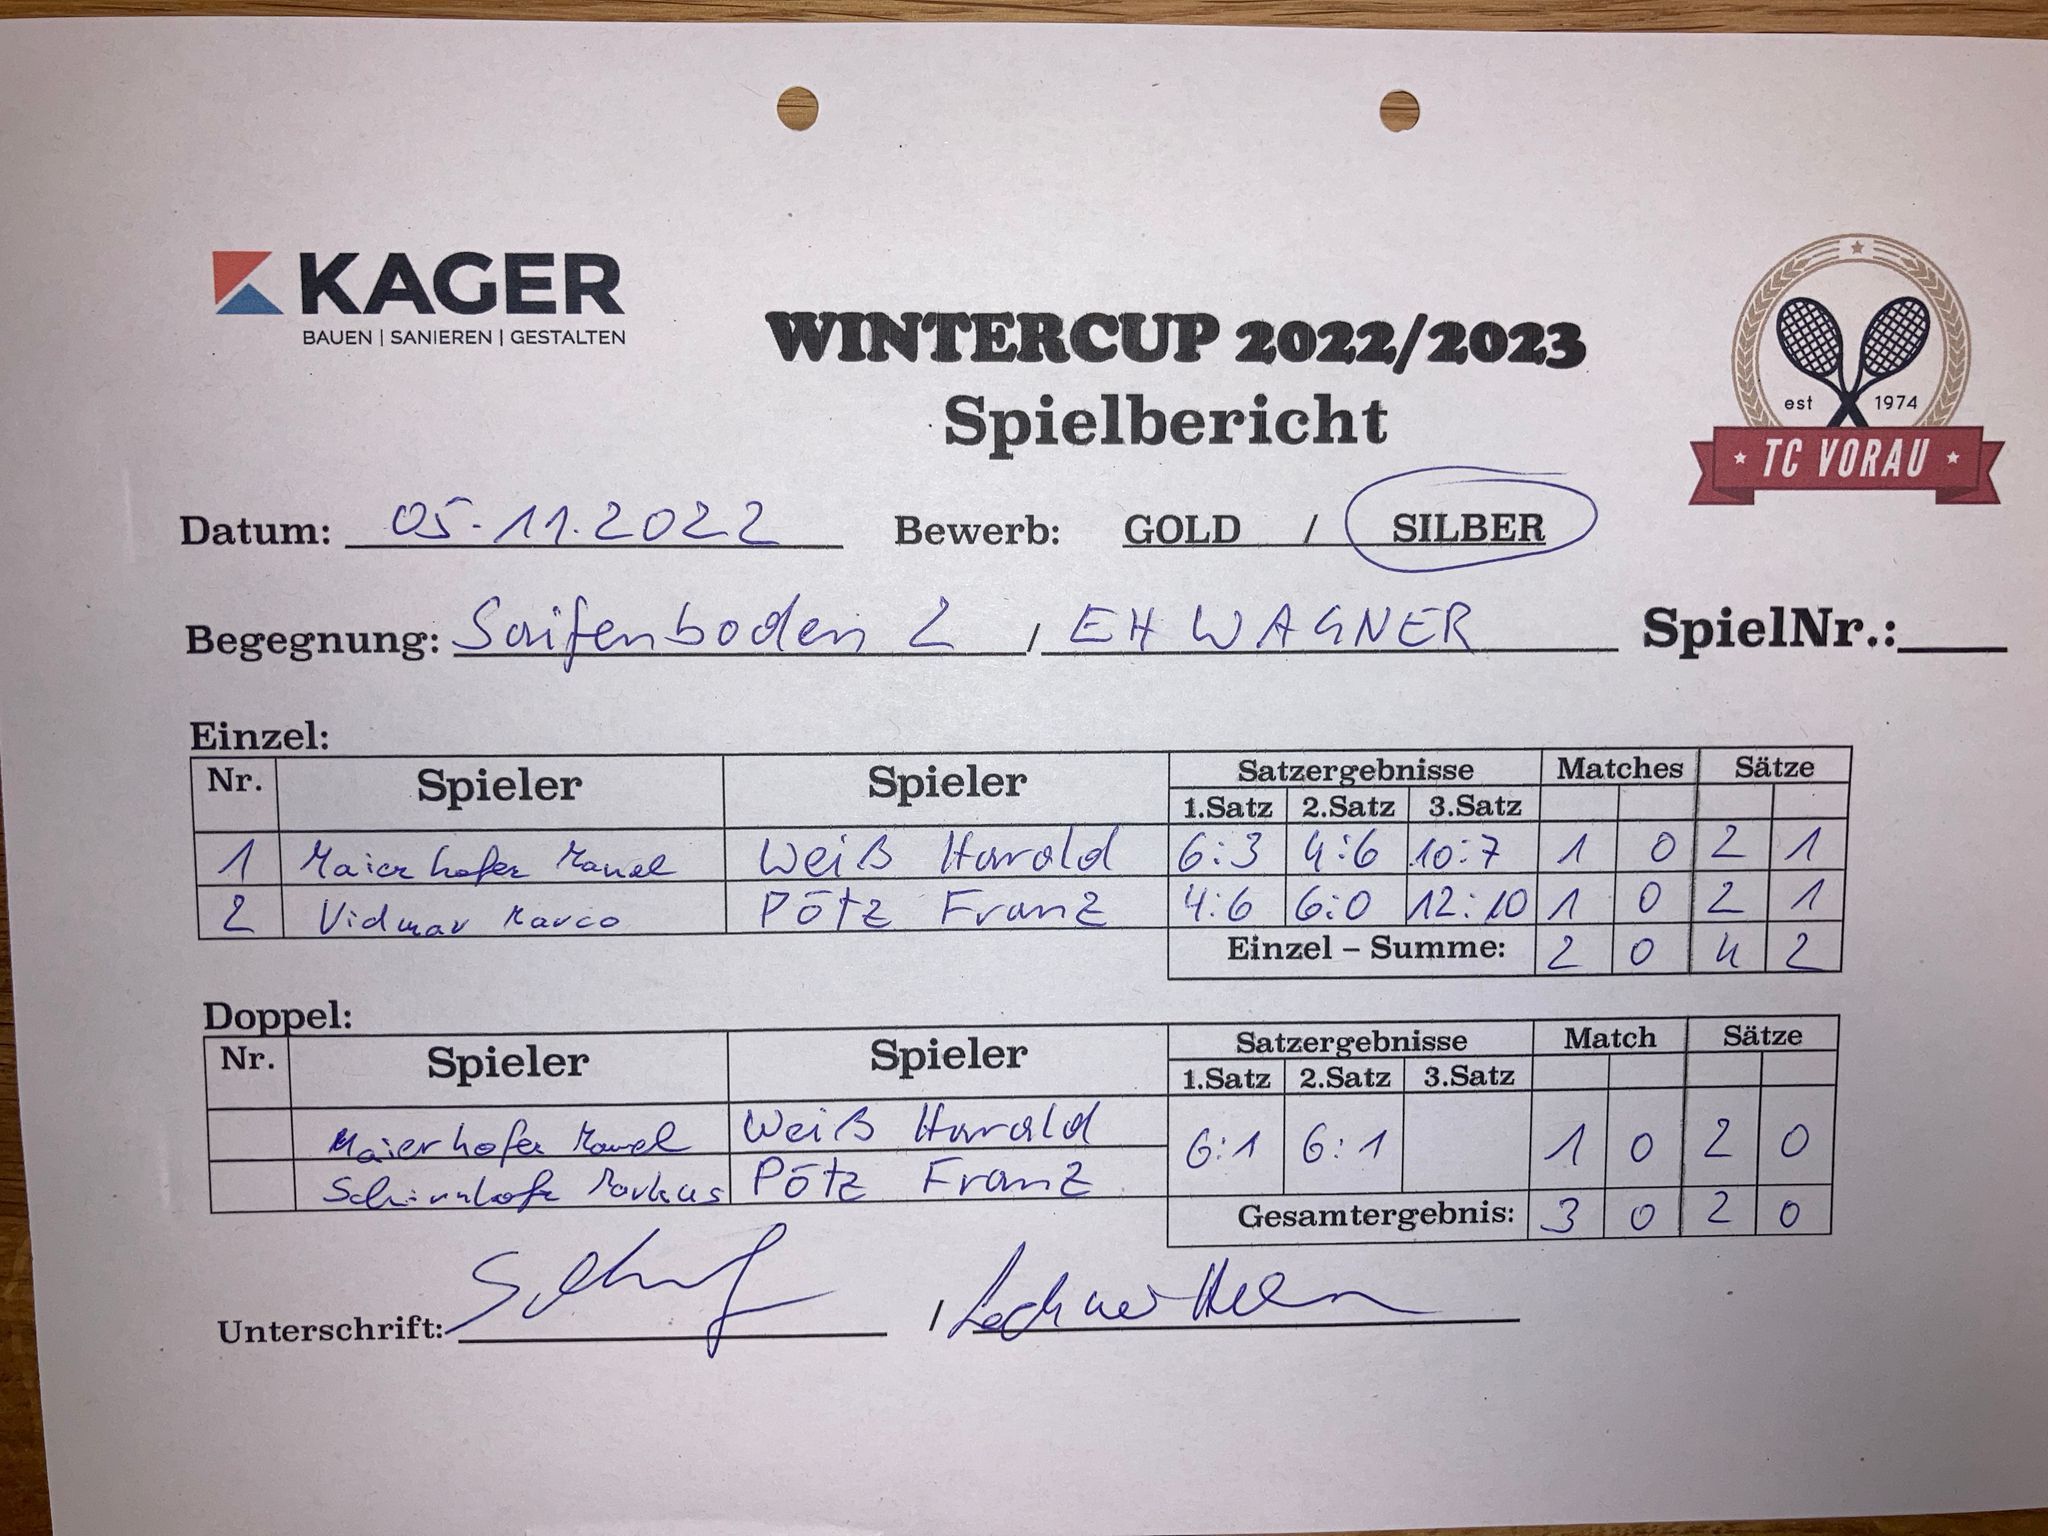 KAGER
BAUEN | SANIEREN | GESTALTEN
WINTERCUP 2022/2023
Spielbericht
est 1974
TC VORAU
Datum: 05.11.2022 Bewerb: GOLD / SILBER
Begegnung: Saifenboden 2 / EH WAGNER SpielNr.:
Einzel:
Nr. Spieler Spieler Satzergebnisse Matches Sätze
1.Satz 2.Satz 3.Satz
1 Maierhofer Manuel Weiß Harald 6:3 4:6 10:7 1 0 2 1
2 Vidmar Marco Pötz Franz 4:6 6:0 12:10 1 0 2 1
Einzel – Summe: 2 0 4 2
Doppel:
Nr. Spieler Spieler Satzergebnisse Match Sätze
1.Satz 2.Satz 3.Satz
Maierhofer Manuel Weiß Harald 6:1 6:1 1 0 2 0
Schirnhofer Markus Pötz Franz
Gesamtergebnis: 3 0 2 0
Unterschrift: /